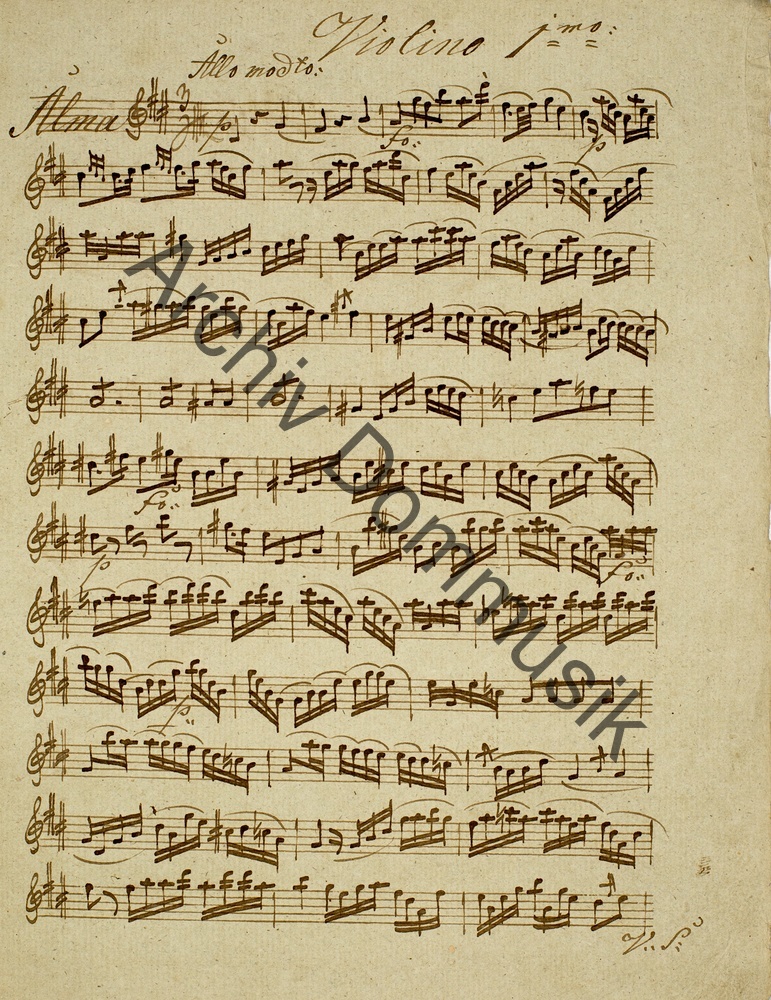 Violino 1mo:
Allo modto:
Alma
p
fo:
p
fo:
p
fo:
p:
V: S:
Archiv Dommusik